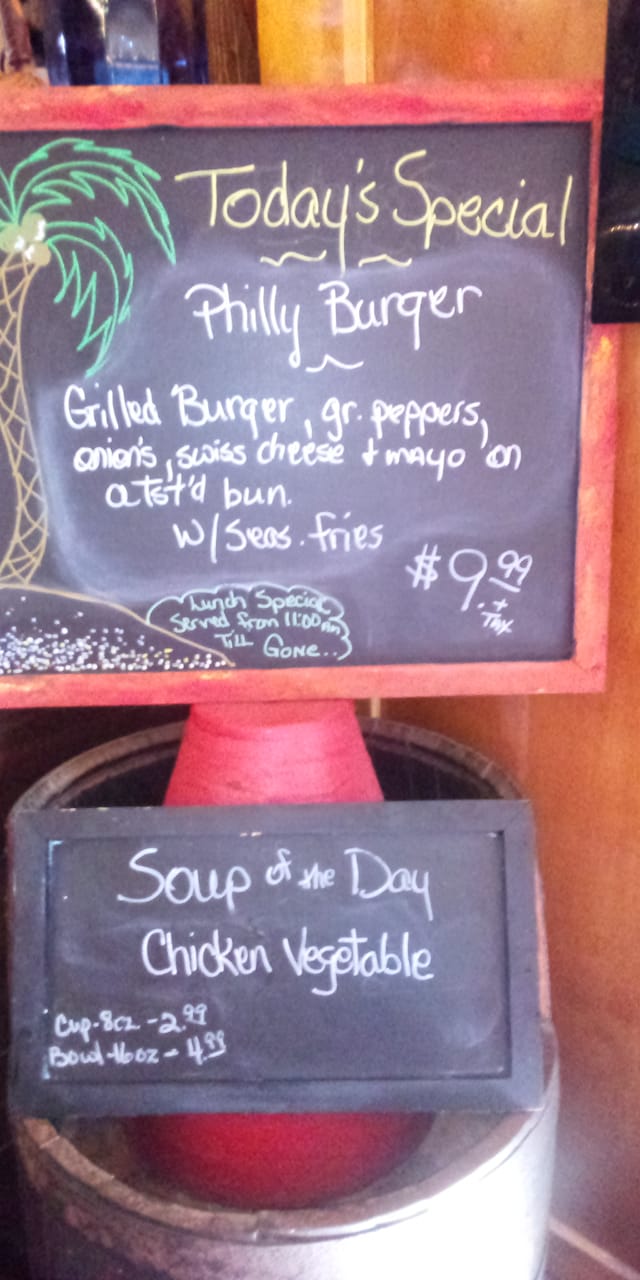 Today's Special
Philly Burger
Grilled Burger, gr. peppers,
onion's, swiss cheese + mayo on
a tst'd bun.
w/ Seas. fries
$9.99
+
TAX
Lunch Special
Served from 11:00am
Till Gone..
Soup of the Day
Chicken Vegetable
Cup-8oz - 2.99
Bowl-16oz - 4.99